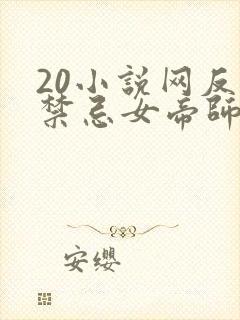 20小説网反
禁忌女帝師
安缨